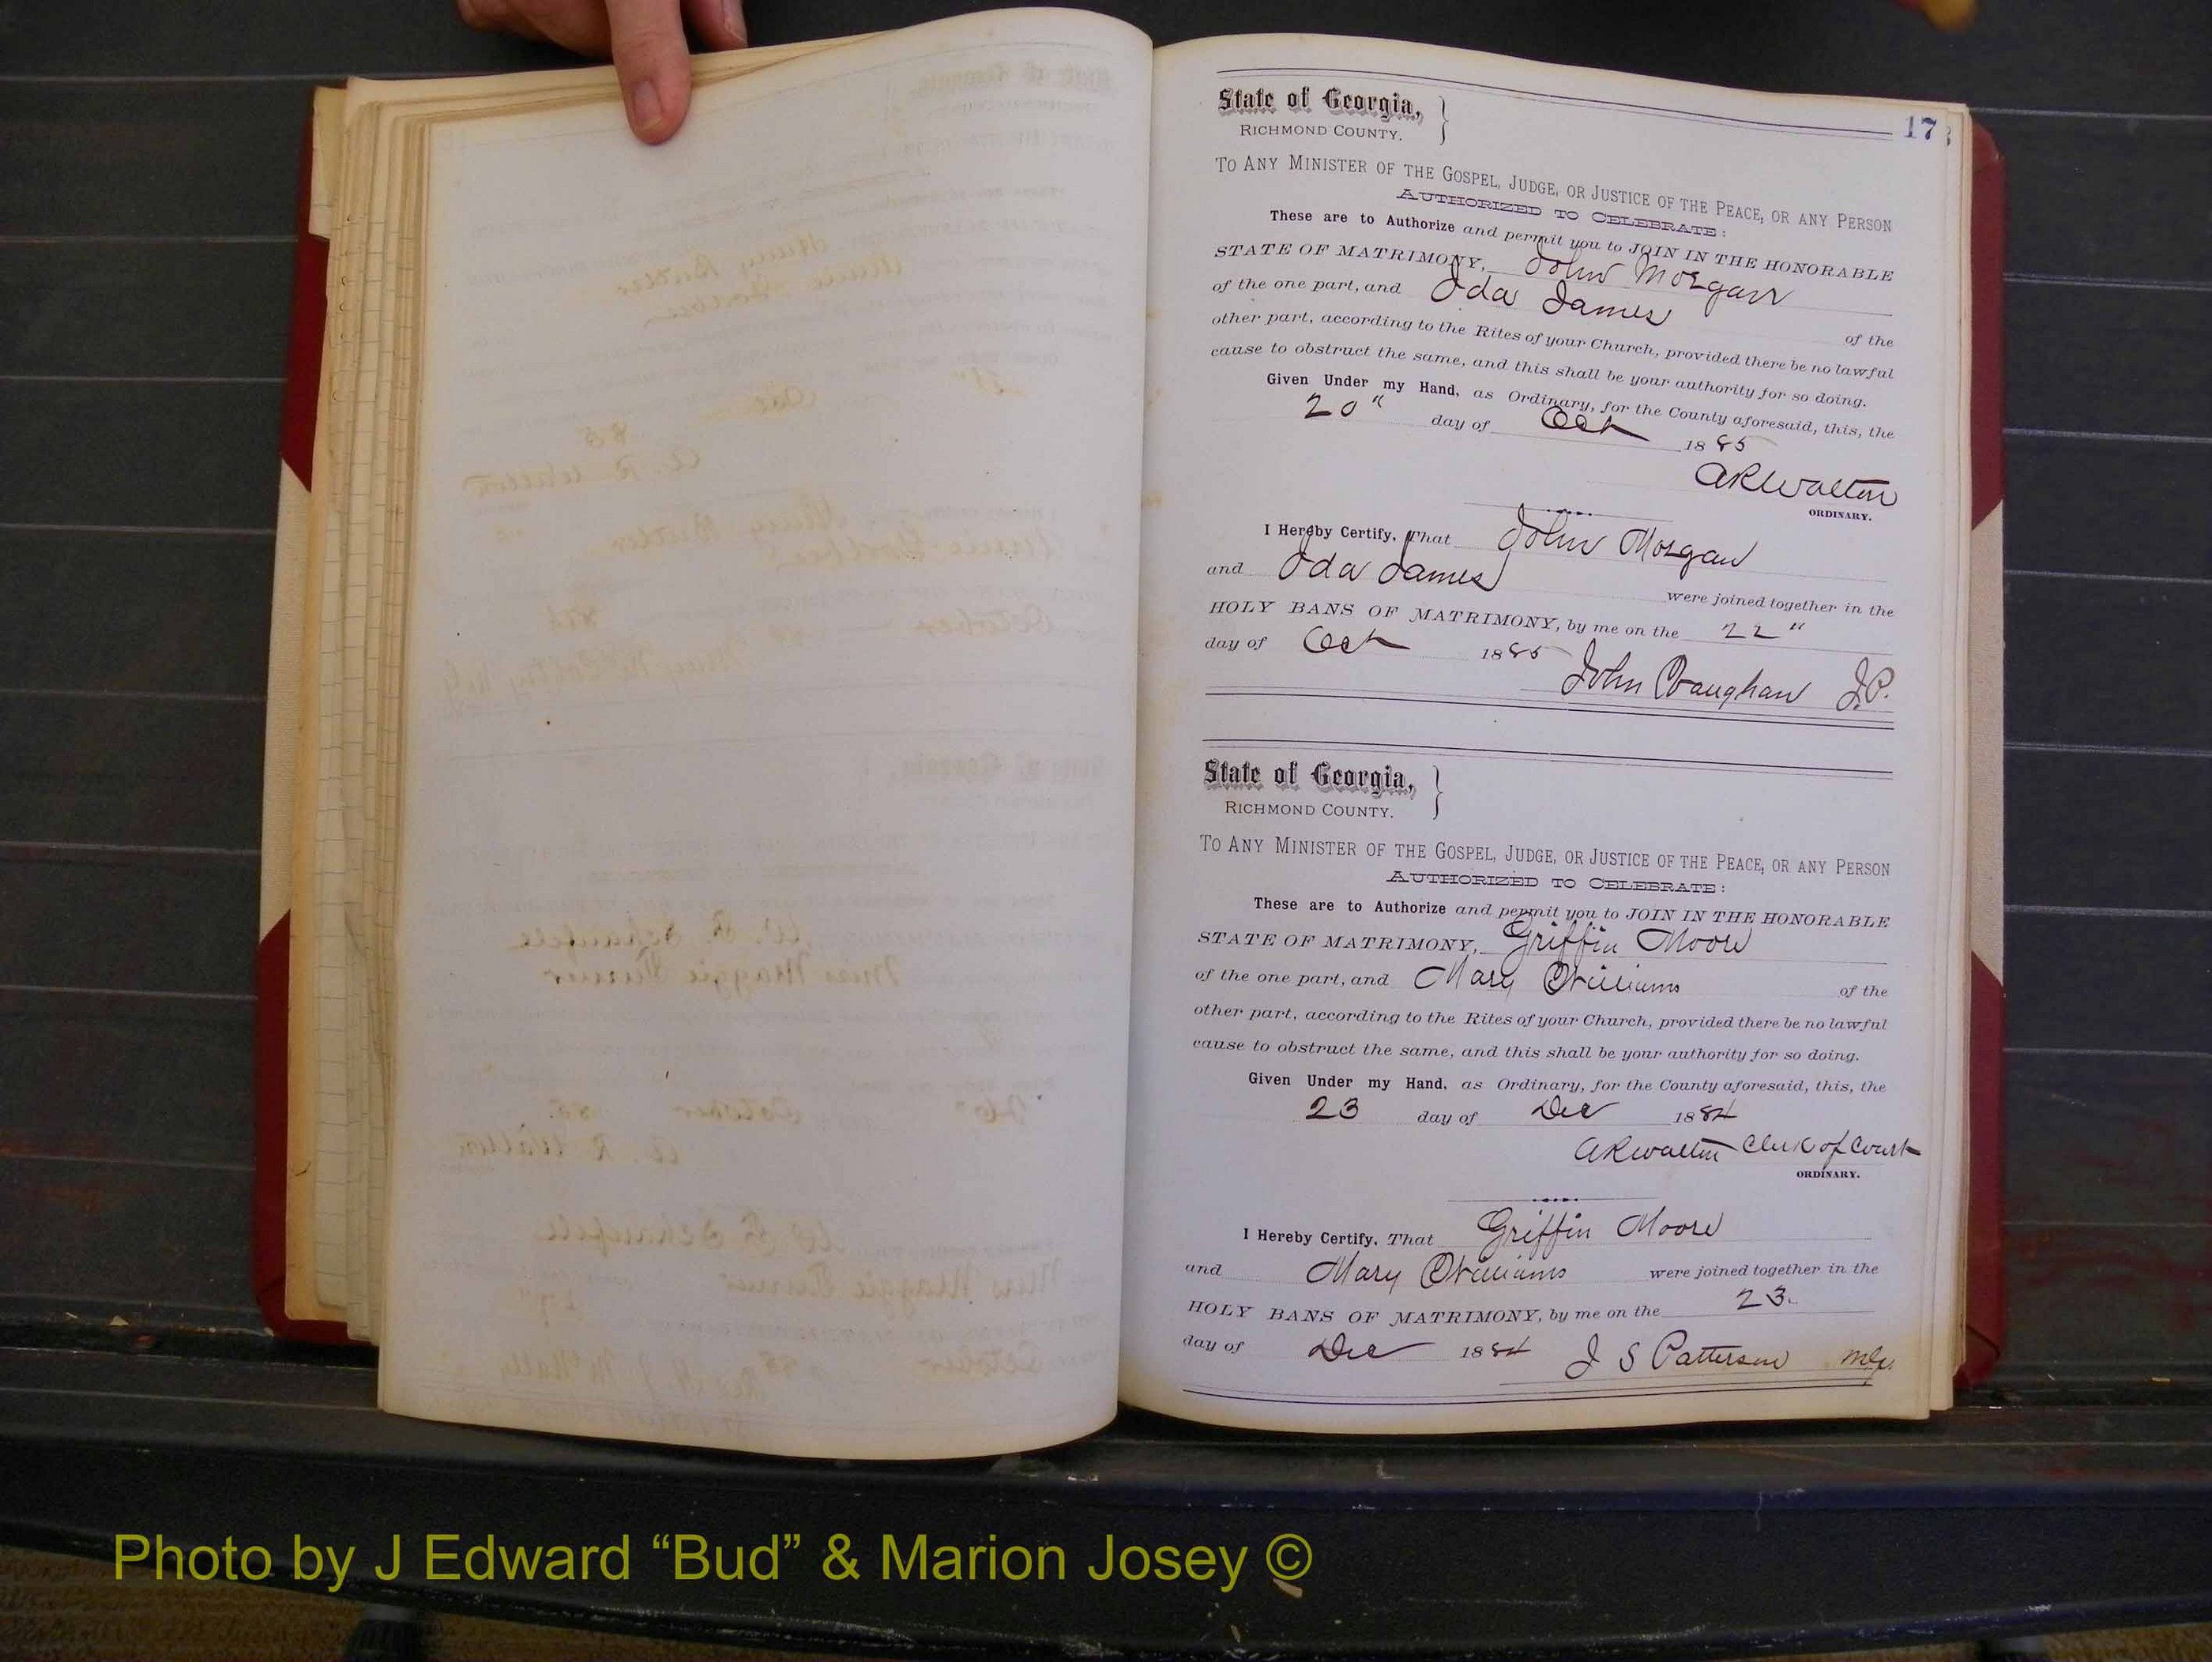 17
State of Georgia,
RICHMOND COUNTY.
TO ANY MINISTER OF THE GOSPEL, JUDGE, OR JUSTICE OF THE PEACE, OR ANY PERSON
AUTHORIZED TO CELEBRATE:
These are to Authorize and permit you to JOIN IN THE HONORABLE
STATE OF MATRIMONY, John Morgan
of the one part, and Ida James of the
other part, according to the Rites of your Church, provided there be no lawful
cause to obstruct the same, and this shall be your authority for so doing.
Given Under my Hand, as Ordinary, for the County aforesaid, this, the
20" day of Oct 1885
A R Walton
ORDINARY.
I Hereby Certify, That John Morgan
and Ida James were joined together in the
HOLY BANS OF MATRIMONY, by me on the 22"
day of Oct 1885
John J.P.
State of Georgia,
RICHMOND COUNTY.
TO ANY MINISTER OF THE GOSPEL, JUDGE, OR JUSTICE OF THE PEACE, OR ANY PERSON
AUTHORIZED TO CELEBRATE:
These are to Authorize and permit you to JOIN IN THE HONORABLE
STATE OF MATRIMONY, Griffin Moore
of the one part, and Mary Williams of the
other part, according to the Rites of your Church, provided there be no lawful
cause to obstruct the same, and this shall be your authority for so doing.
Given Under my Hand, as Ordinary, for the County aforesaid, this, the
23 day of Dec 1884
A R Walton Clerk of Court
ORDINARY.
I Hereby Certify, That Griffin Moore
and Mary Williams were joined together in the
HOLY BANS OF MATRIMONY, by me on the 23.
day of Dec 1884 J S Patterson
Photo by J Edward “Bud” & Marion Josey ©